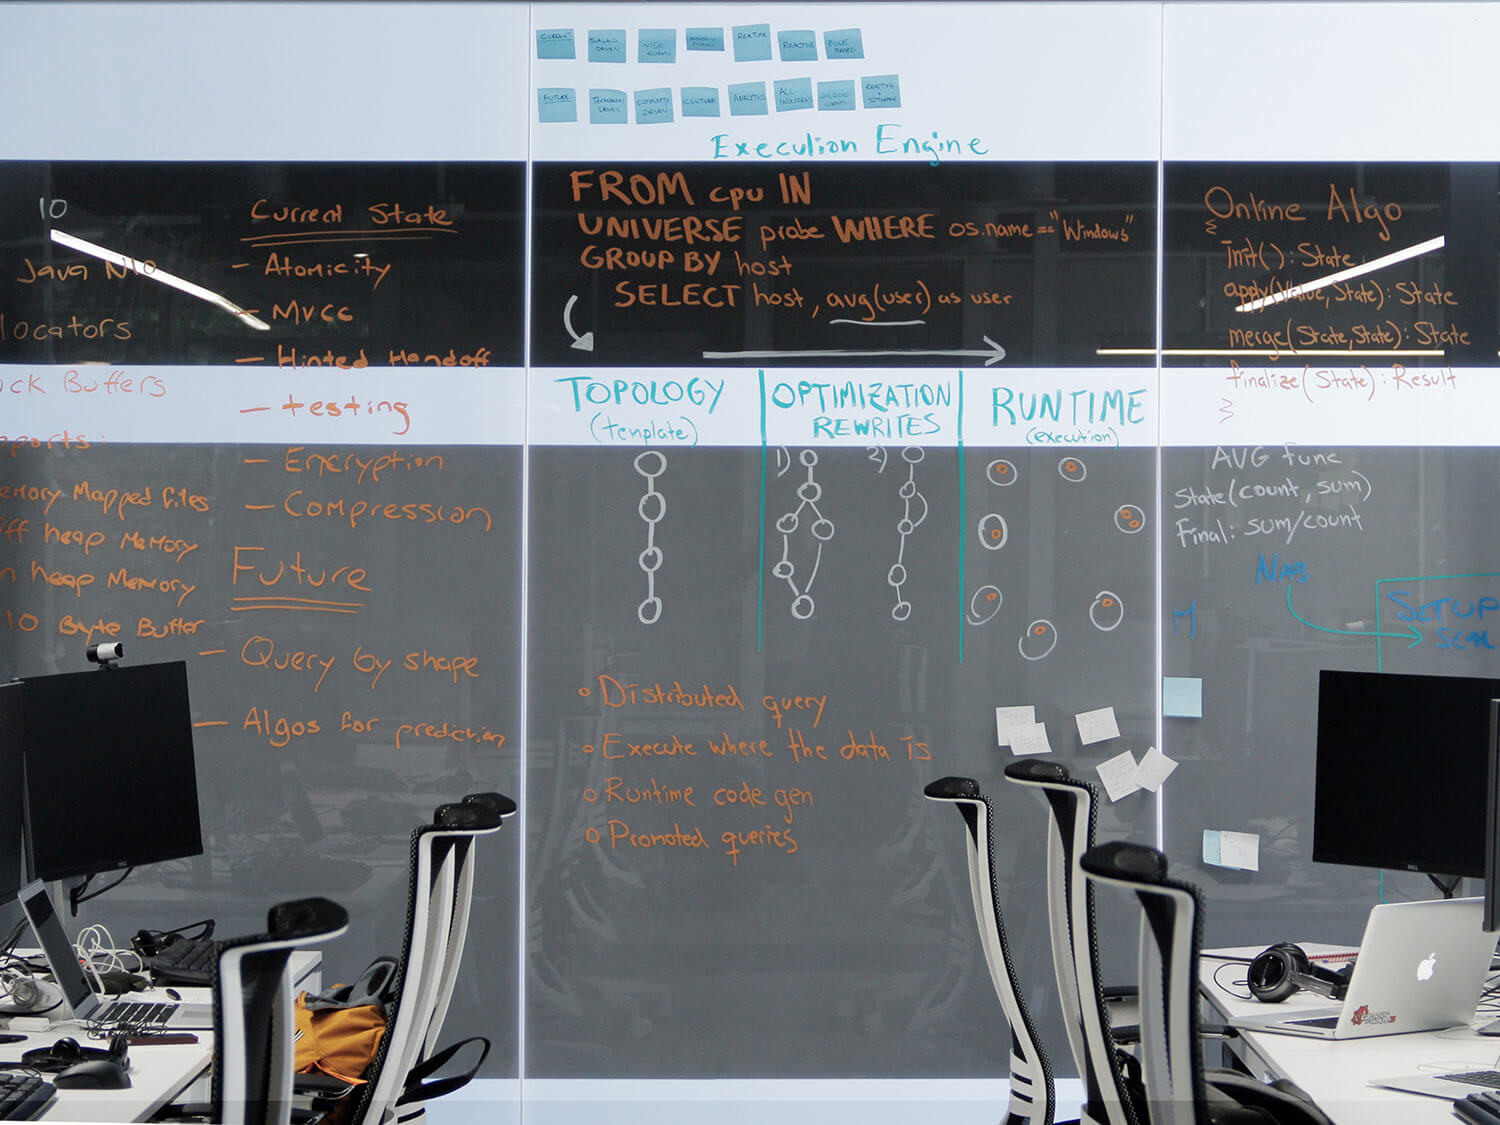 CURRENT
SALES DRIVEN
~150 CLIENTS
REACTIVE
RULE BASED
FUTURE
TECHNOLOGY DRIVEN
COMMUNITY DRIVEN
CULTURE
ANALYTICS
ALL INDUSTRIES
Execution Engine
FROM cpu IN
UNIVERSE probe WHERE os.name == "Windows"
GROUP BY host
SELECT host, avg(user) as user
TOPOLOGY
(template)
OPTIMIZATION
REWRITES
1)
2)
RUNTIME
(execution)
o Distributed query
o Execute where the data is
o Runtime code gen
o Promoted queries
10
Java NIO
locators
ock Buffers
pports:
emory Mapped files
ff heap Memory
n heap Memory
10 Byte Buffer
Current State
- Atomicity
- MVCC
- Hinted Handoff
- testing
- Encryption
- Compression
Future
- Query by shape
- Algos for prediction
Online Algo
{
Init(): State
apply(Value, State): State
merge(State, State): State
finalize(State): Result
}
AVG func
State(count, sum)
Final: sum/count
SETUP
DELL